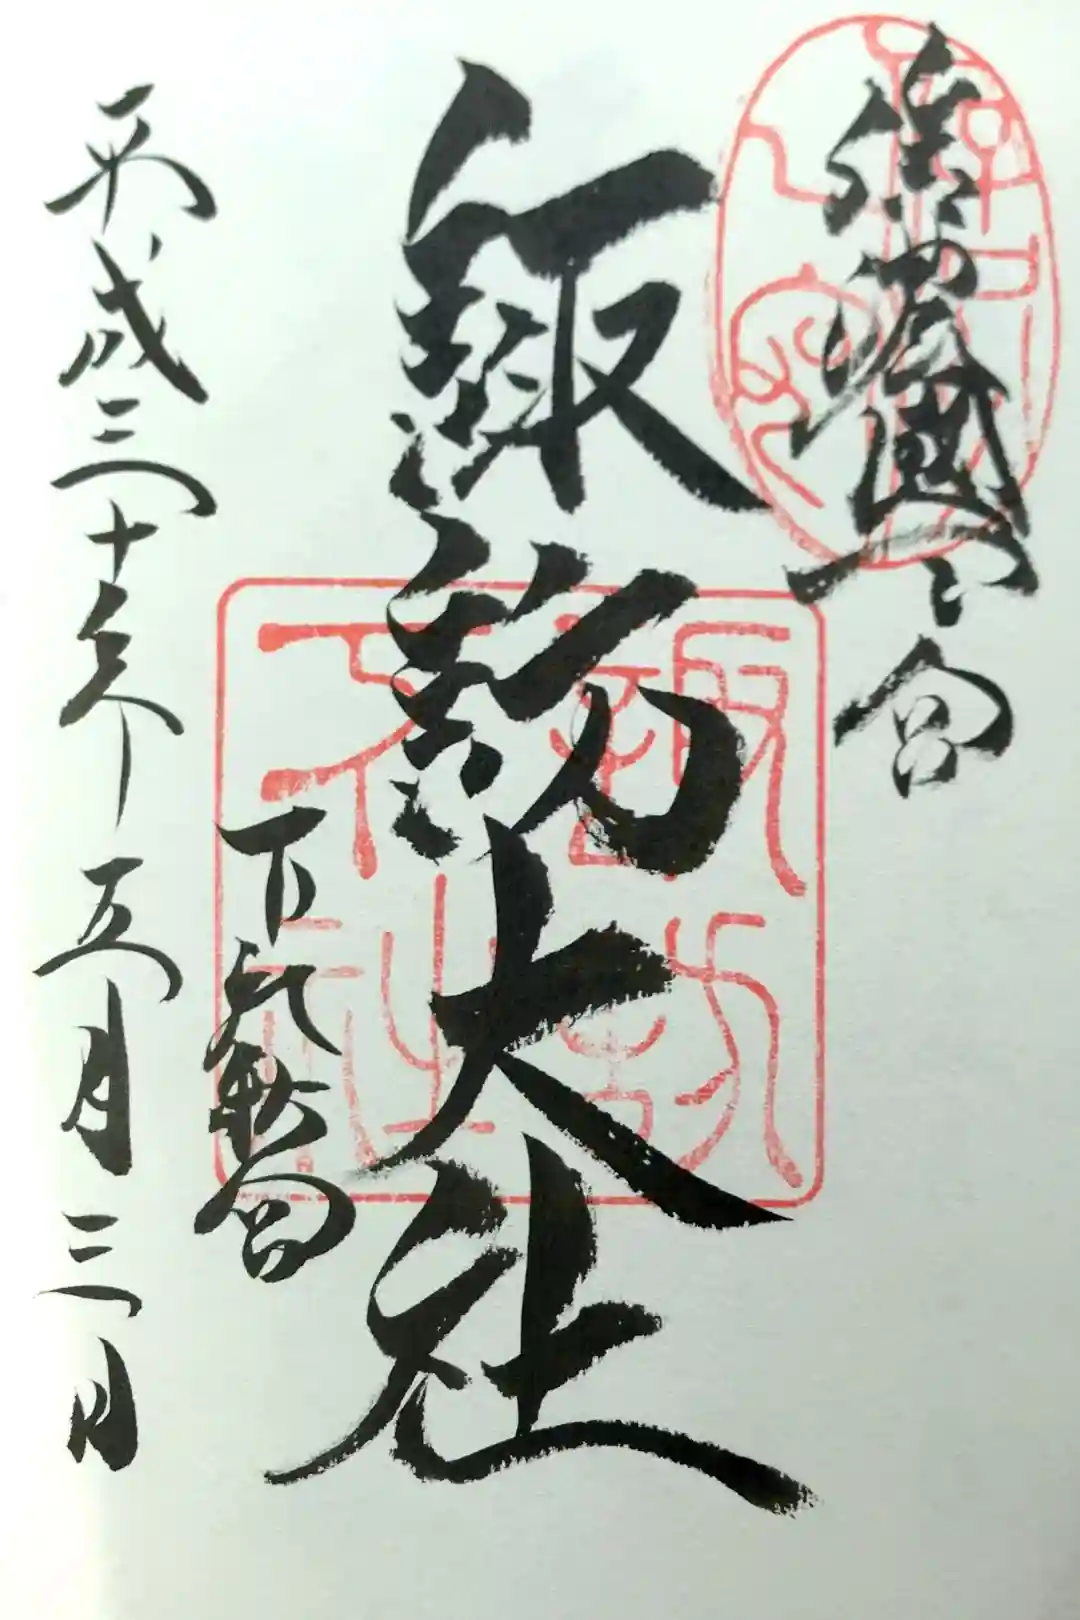 信濃國一之宮
諏訪大社
下社秋宮
平成三十年五月三日